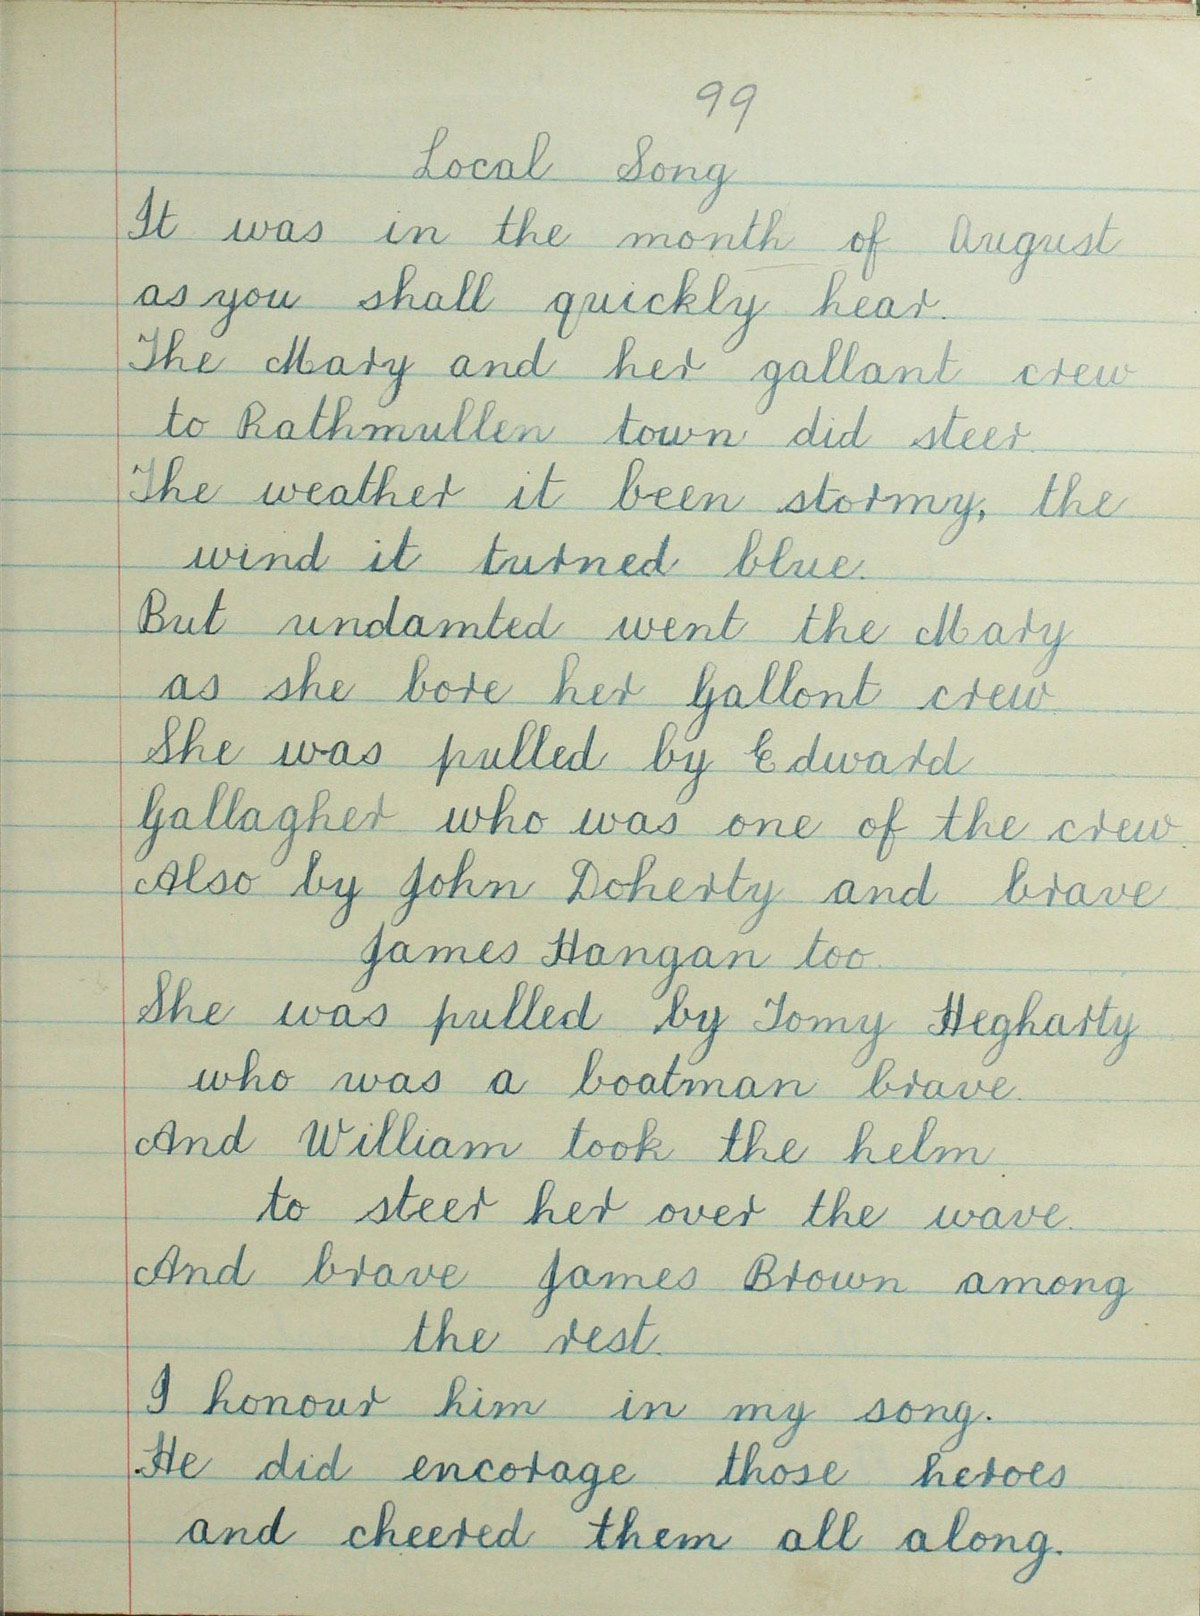 99
Local Song
It was in the month of August
as you shall quickly hear.
The Mary and her gallant crew
to Rathmullen town did steer.
The weather it been stormy, the
wind it turned blue.
But undamted went the Mary
as she bore her Gallont crew
She was pulled by Edward
Gallagher who was one of the crew.
Also by John Doherty and brave
James Hangan too.
She was pulled by Tomy Hegharty
who was a boatman brave.
And William took the helm
to steer her over the wave.
And brave James Brown among
the rest.
I honour him in my song.
He did encorage those heroes
and cheered them all along.